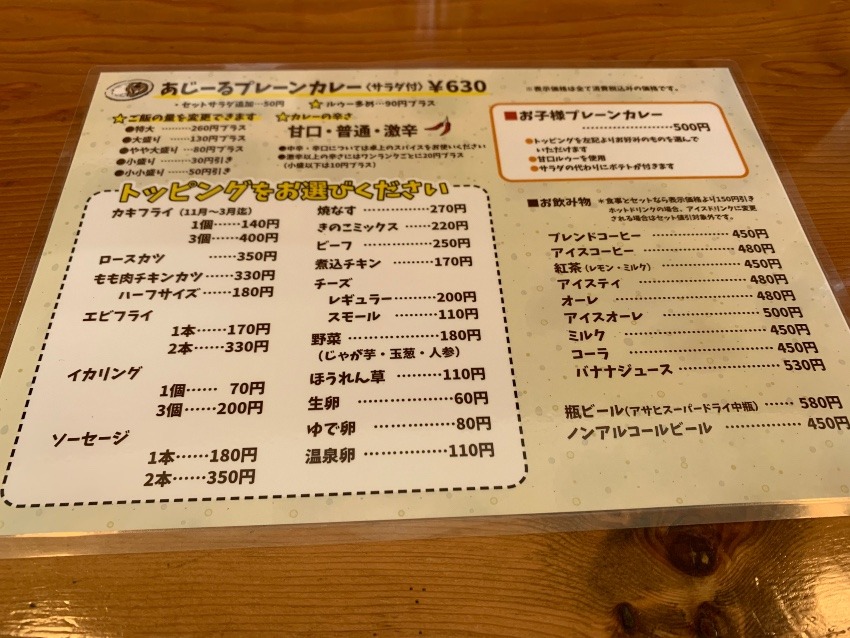 あじーるプレーンカレー(サラダ付) ¥630
※表示価格は全て消費税込外の価格です。
・セットサラダ追加…50円 ☆ルゥー多め…90円プラス
☆ご飯の量を変更できます
●特大 ………260円プラス
●大盛り ………130円プラス
●やや大盛り …80円プラス
●小盛り ………30円引き
●小小盛り ……50円引き
☆カレーの辛さ
甘口・普通・激辛
●中辛・辛口については卓上のスパイスをお使いください
●激辛以上の辛さにはワンランクごとに20円プラス
(小盛以下は10円プラス)
■お子様プレーンカレー
………………500円
●トッピングを左記よりお好みのものを選んで
いただけます
●甘口ルゥーを使用
●サラダの代わりにポテトが付きます
トッピングをお選びください
カキフライ (11月〜3月迄)
1個……140円
3個……400円
ロースカツ ……350円
もも肉チキンカツ……330円
ハーフサイズ……180円
エビフライ
1本……170円
2本……330円
イカリング
1個…… 70円
3個……200円
ソーセージ
1本……180円
2本……350円
焼なす ……………270円
きのこミックス ……220円
ビーフ ……………250円
煮込チキン ………170円
チーズ
レギュラー………200円
スモール ………110円
野菜 ………………180円
(じゃが芋・玉葱・人参)
ほうれん草 ………110円
生卵 ………………60円
ゆで卵 ……………80円
温泉卵 ……………110円
■お飲み物 *食事とセットなら表示価格より150円引き
ホットドリンクの場合、アイスドリンクに変更
される場合はセット値引対象外です。
ブレンドコーヒー ……………450円
アイスコーヒー ………………480円
紅茶(レモン・ミルク) …………450円
アイスティ ……………………480円
オーレ …………………………480円
アイスオーレ …………………500円
ミルク …………………………450円
コーラ …………………………450円
バナナジュース ………………530円
瓶ビール(アサヒスーパードライ中瓶) ……580円
ノンアルコールビール ……………450円